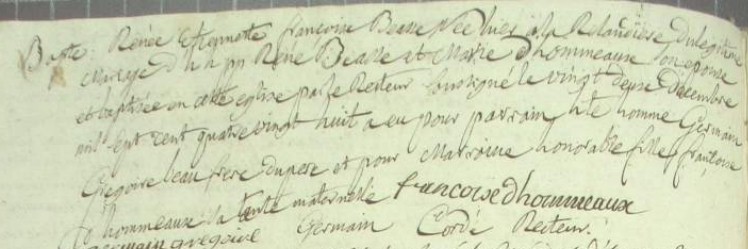 Bapte. Renée Etiennette françoise Beasse Née hier à la Relandière Du legitime
Mariage d'h h pp René Beasse et Marie d'hommeaux son epouse
et baptisée en cette eglise par le Recteur soussigné le vingt deux Décembre
mil sept cent quatre vingt huit a eu pour parrain hble homme Germain
Gregoire beau frere du pere et pour Marraine honorable fille françoise
d'hommeaux sa tante maternelle françoise d'hommeaux
germain gregoire Germain Cordé Recteur.